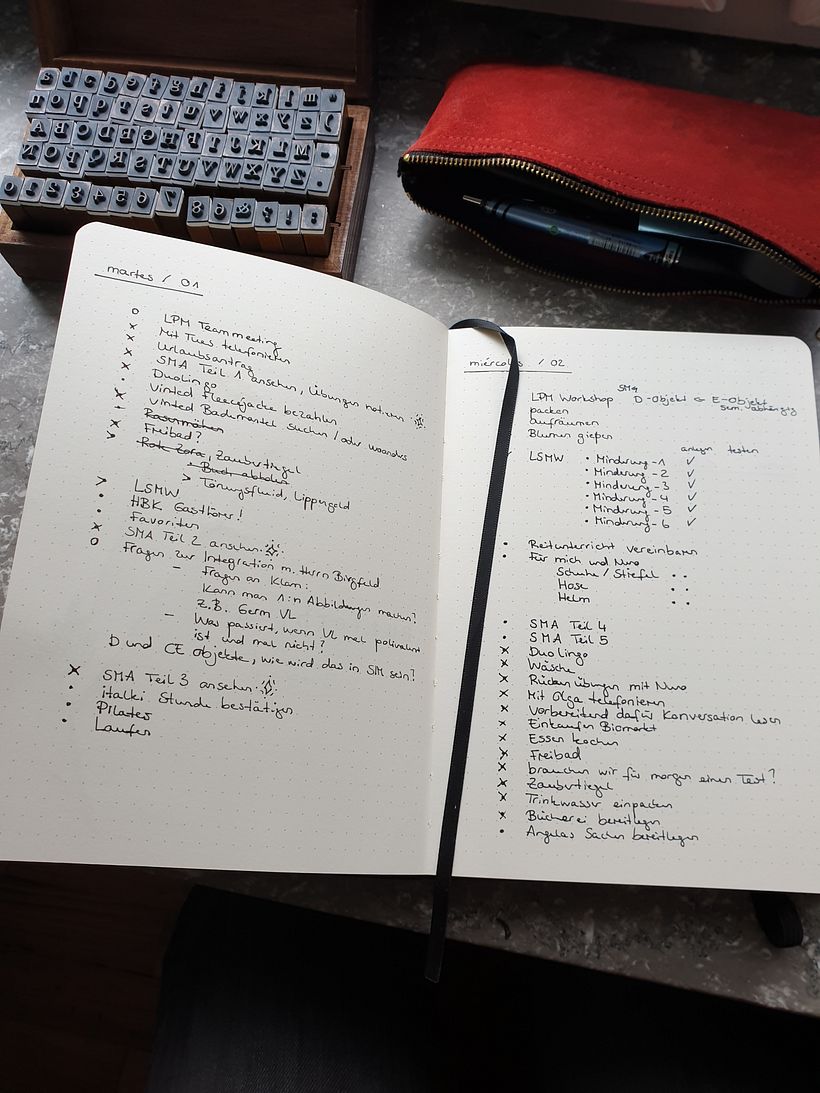 martes / 01
o LPM Teammeeting
x Mit Tues telefonieren
x Urlaubsantrag
x SMA Teil 1 ansehen, Übungen notieren
• Duolingo
x Vinted Fleecejacke bezahlen
– Vinted Bademantel suchen / oder woanders
Rasenmähen
x Freibad?
> Rote Zora, Zaubertiegel
• Buch abholen
> Tönungsfluid, Lippengold
> LSMW
• HBK Gasthörer!
• Favoriten
x SMA Teil 2 ansehen
o Fragen zur Integration m. Herrn Birgfeld
– Fragen an Klam:
Kann man 1:n Abbildungen machen?
Z.B. Germ VL
– Was passiert, wenn VL mal polivalent
ist und mal nicht?
D und CE Objekte, wie wird das in SM sein?
x SMA Teil 3 ansehen
• italki Stunde bestätigen
• Pilates
• Laufen
miércoles / 02
LPM Workshop D-Objekt E-Objekt
sem. abhängig
packen
aufräumen
Blumen gießen
anlegen testen
LSMW • Minderung-1 ✓
• Minderung-2 ✓
• Minderung-3 ✓
• Minderung-4 ✓
• Minderung-5 ✓
• Minderung-6 ✓
• Reitunterricht vereinbaren
• Für mich und Nuno
Schuhe / Stiefel • •
Hose • •
Helm • •
• SMA Teil 4
• SMA Teil 5
x Duolingo
x Wäsche
x Rückenübungen mit Nuno
x Mit Olga telefonieren
x Vorbereitend dafür Konversation lesen
x Einkaufen Biomarkt
x Essen kochen
x Freibad
x brauchen wir für morgen einen Test?
x Zaubertiegel
x Trinkwasser einpacken
x Bücherei bereitlegen
• Angelas Sachen bereitlegen